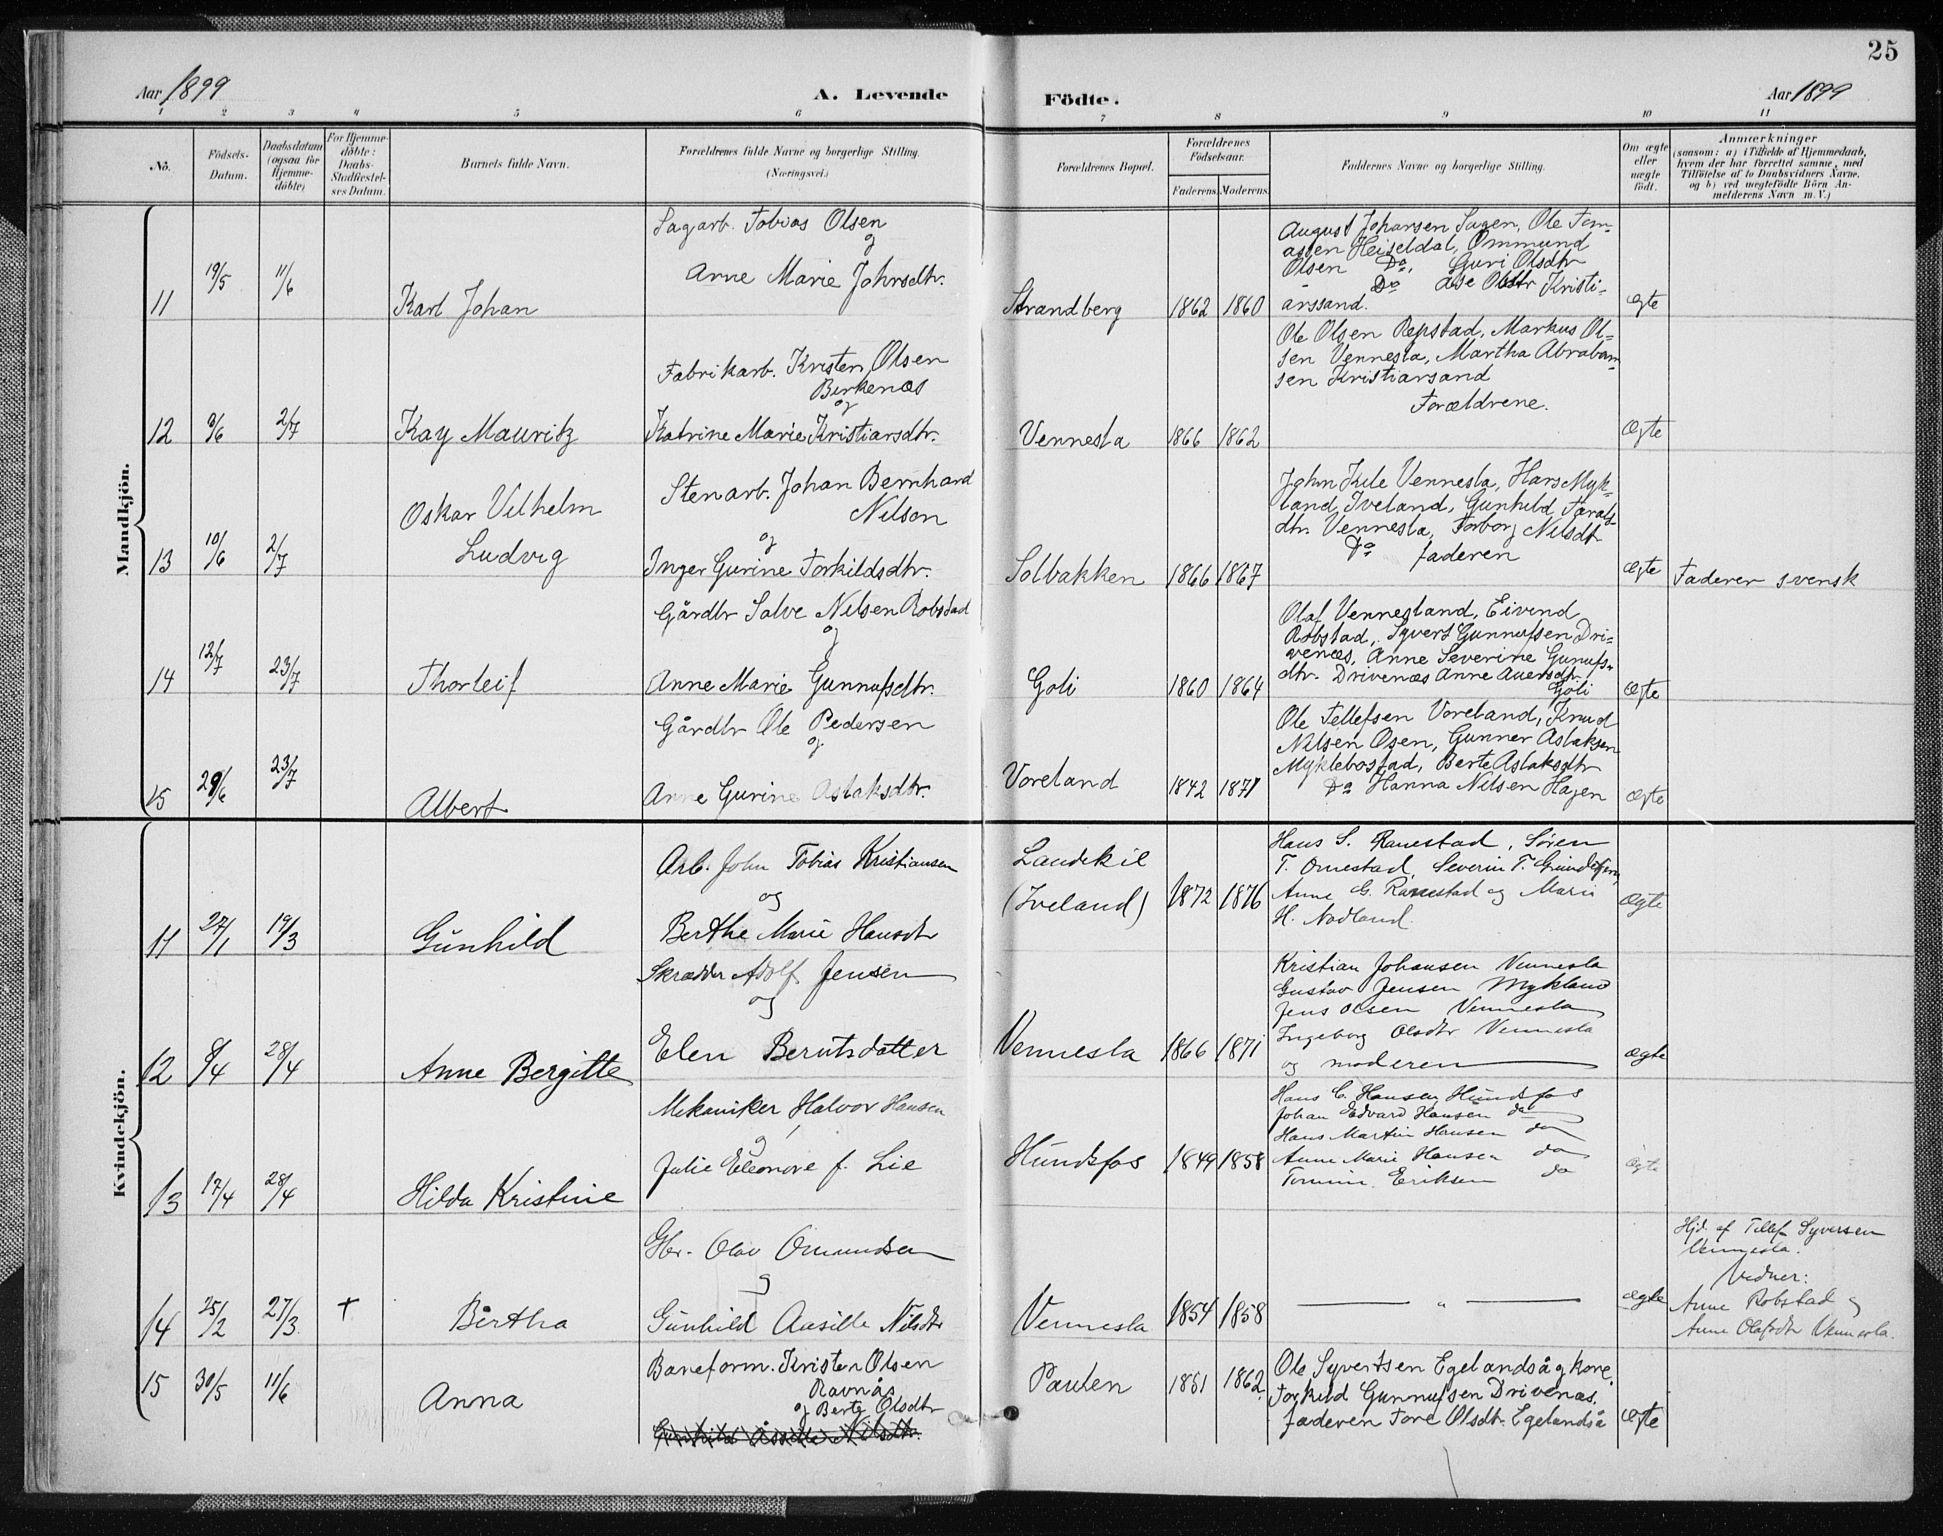 25
Aar 1899
A. Levende
Födte.
Aar 1899
1 2 3 4 5 6 7 8 9 10 11
No.
Födsels-
Datum.
Daabsdatum
(ogsaa for
Hjemme-
döbte)
For Hjemme-
döbte:
Daabs-
Stadfæstel-
ses Datum.
Barnets fulde Navn.
Forældrenes fulde Navne og borgerlige Stilling.
(Næringsvei.)
Forældrenes Bopæl.
Forældrenes
Födselsaar.
Faderens. Moderens.
Faddernes Navne og borgerlige Stilling.
Om ægte
eller
uægte
födt.
Anmærkninger
(saasom: a) i Tilfælde af Hjemmedaab,
hvem der har forrettet samme, med
Tilföielse af to Daabsvidners Navne,
og b) ved uegtefödte Börn An-
melderens Navn m. V.)
Mandkjön.
11
19/5
11/6
Karl Johan
Sagarb. Tobias Olsen
og
Anne Marie Johnsdtr.
Strandberg
1862 1860
August Johansen Sagen, Ole Tom-
assen Heiseldal, Ommund
Olsen Do, Guri Olsdtr
Do Åse Olsdtr Kristi-
anssand.
ægte
12
9/6
2/7
Kay Mauritz
Fabrikarb. Kristen Olsen
Birkenæs
og
Katrine Marie Kristiansdtr.
Vennesla
1866 1862
Ole Olsen Repstad, Markus Ol-
sen Vennesla, Martha Abraham-
sen Kristiansand
Forældrene.
Ægte
13
10/6
2/7
Oskar Vilhelm
Ludvig
Stenarb. Johan Bernhard
Nilson
og
Inger Gurine Torkildsdtr.
Solbakken
1866 1867
John Kile Vennesla, Hans Myk-
land Iveland, Gunhild Taralds-
dtr. Vennesla, Torborg Nilsdtr
Do faderen
Ægte
Faderen svensk
14
12/7
23/7
Thorleif
Gårdbr Salve Nilsen Robstad
og
Anne Marie Gunnufsdtr.
Goli
1860 1864
Olaf Vennesland, Eivend
Robstad, Syvert Gunnufsen Dri-
venæs, Anne Severine Gunufs-
dtr. Drivenæs Anne Auensdtr.
Goli
Ægte
15
29/6
23/7
Albert
Gårdbr Ole Pedersen
og
Anne Gurine Aslaksdtr.
Voreland
1842 1871
Ole Tellefsen Voreland, Knud
Nilsen Osen, Gunner Aslaksen
Myklebostad, Berte Aslaksdtr
Do Hanna Nilsen Hagen
Ægte
Kvindekjön.
11
27/1
19/3
Gunhild
Arb. John Tobias Kristiansen
og
Berthe Marie Hansdtr
Landekil
(Iveland)
1872 1876
Hans S. Ranestad, Sören
T. Omestad, Severin T.
Anne G. Ranestad og Marie
H. Nodland.
Ægte
12
9/4
28/4
Anne Bergitte
Skrædder Adolf Jensen
og
Elen Berntsdatter
Vennesla
1866 1871
Kristian Johansen Vennesla
Gustav Jensen Mykland
Jens Olsen Vennesla
Ingeborg Olsdtr Vennesla
og moderen
Ægte
13
17/4
28/4
Hilda Kristine
Mekaniker Halvor Hansen
og
Julie Eleonore f. Lie
Hunsfos
1849 1858
Hans C. Hansen Hunsfos
Johan Edvard Hansen do
Hans Martin Hansen do
Anne Marie Hansen do
Tomine Eriksen do
Ægte
14
25/2
27/3
+
Bertha
Gbr. Olav Omundsen
og
Gunhild Aasille Nilsdtr
Vennesla
1854 1858
— " —
Ægte
Hjd. af Tellef Syversen
Vennesla.
Vidner:
Anne Robstad og
Anne Olafsdtr Vennesla.
15
30/5
11/6
Anna
Baneform. Kristen Olsen
Ravnås
og Berte Olsdtr
Gunhild Åsille Nilsdtr.
Paulen
1851 1862
Ole Syvertsen Egelandså og kone.
Torkild Gunnufsen Drivenæs.
Faderen Tore Olsdtr. Egelandså
Ægte